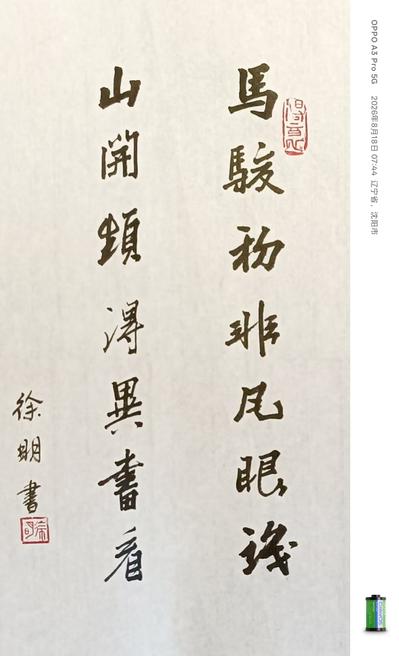 馬駿初非凡眼識
山開頻得異書看
徐明書
OPPO A3 Pro 5G 2026年8月18日 07:44 辽宁省，沈阳市